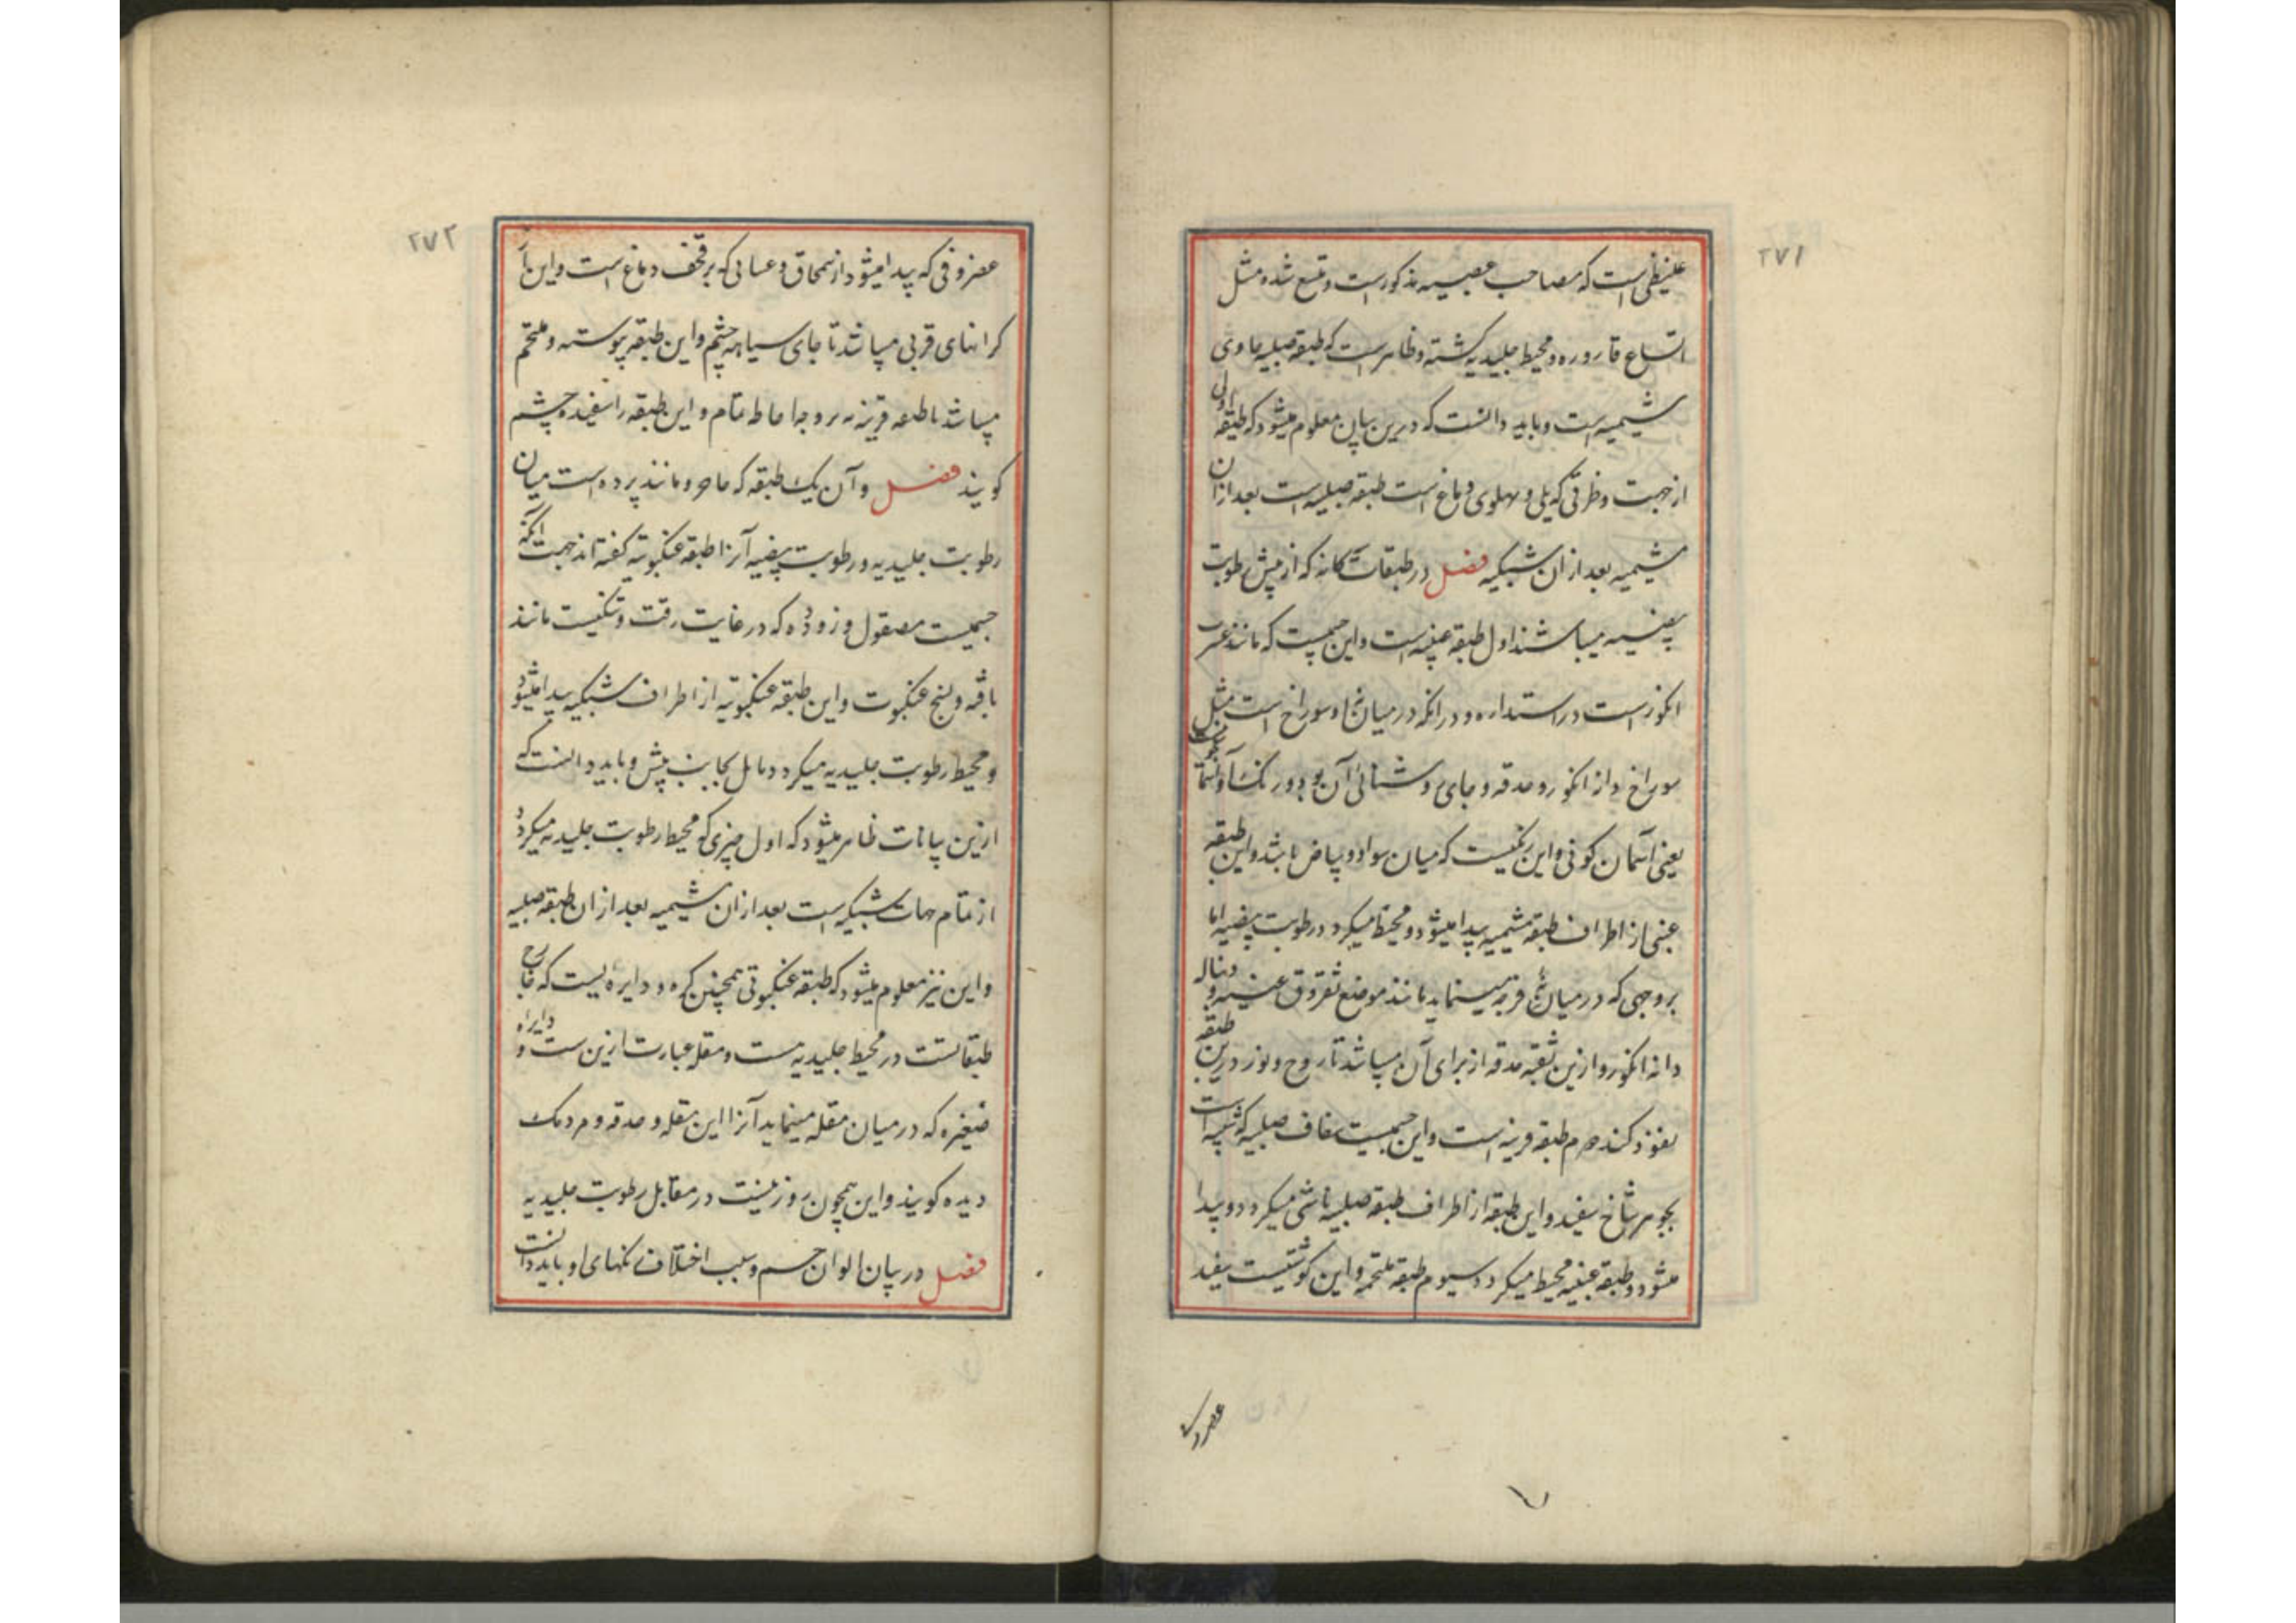 ۲۷۱
غلیظی است که مصاحب عصبیه مذکور است و متسع شده مثل
اتساع قاروره و محیط جلیدیه کشته و ظاهر است که طبقه صلبیه حاوی
مشیمیه است و باید دانست که درین بیان معلوم میشود که طبقه اولی
از جهت و ظرفی که یلی و پهلوی دماغ است طبقه صلبیه است بعد ازان
مشیمیه بعد ازان شبکیه فصل در طبقات که از پیش رطوبت
بیضیه میباشند اول طبقه عنبیه است و این جسمیست که مانند عنب
انکور است در استداره و در انکه در میان او سوراخ است مثل
سوراخ دانه انکور و حدقه و جای روشنائی آن بود و رنک
یعنی آسمان کونی و این رنکیست که میان سواد و بیاض باشد و این طبقه
عنبی از اطراف طبقه مشیمیه پیدا میشود و محیط میکردد رطوبت بیضیه اما
بر وجهی که در میان فرجه مینماید مانند موضع ثفروق عنبیه و دنباله
دانه انکور و ازین ثقبه حدقه از برای آن میباشد تا روح و نور درین طبقه
نفوذ کند دوم طبقه قرنیه است و این جسمیست شفاف صلبیه که شبیه است
بجوهر شاخ سفید و این طبقه از اطراف طبقه صلبیه ناشی میکردد و پیدا
میشود و طبقه عنبیه محیط میکردد سیوم طبقه ملتحمه و این کوشتیست سفید
۲۷۲
عضروفی که پیدا میشود از سمحاق و غسائی که بر قحف دماغ است و این تا
کرانهای قربی میباشد تا جای سیاهه چشم و این طبقه پیوسته و ملتحم
میباشد با طبقه قرنیه نه بر وجه احاطه تمام و این طبقه را سفیده چشم
کویند فصل و آن یک طبقه که حاجز و مانند پرده است میان
رطوبت جلیدیه و رطوبت بیضیه آنرا طبقه عنکبوتیه کفته اند جهت آنکه
جسمیست مصقول و زدوده که در غایت رقت و تنکیست مانند
بافته و نسج عنکبوت و این طبقه عنکبوتیه از اطراف شبکیه پیدا میشود
و محیط رطوبت جلیدیه میکردد مایل بجانب پیش و باید دانست که
ازین بیانات ظاهر میشود که اول چیزی که محیط رطوبت جلیدیه میکردد
از تمام جهات شبکیه است بعد ازان مشیمیه بعد ازان طبقه صلبیه
و این نیز معلوم میشود که طبقه عنکبوتی همچنین کره و دایره ایست که خارج
طبقاتست در محیط جلیدیه است و مقله عبارت ازین است و دایراه
ضغیره که در میان مقله مینماید آنرا این مقله و حدقه و مردمک
دیده کویند و این همچون روزنیست در مقابل رطوبت جلیدیه
فصل در بیان الوان جسم و سبب اختلاف رنکهای او باید دانست